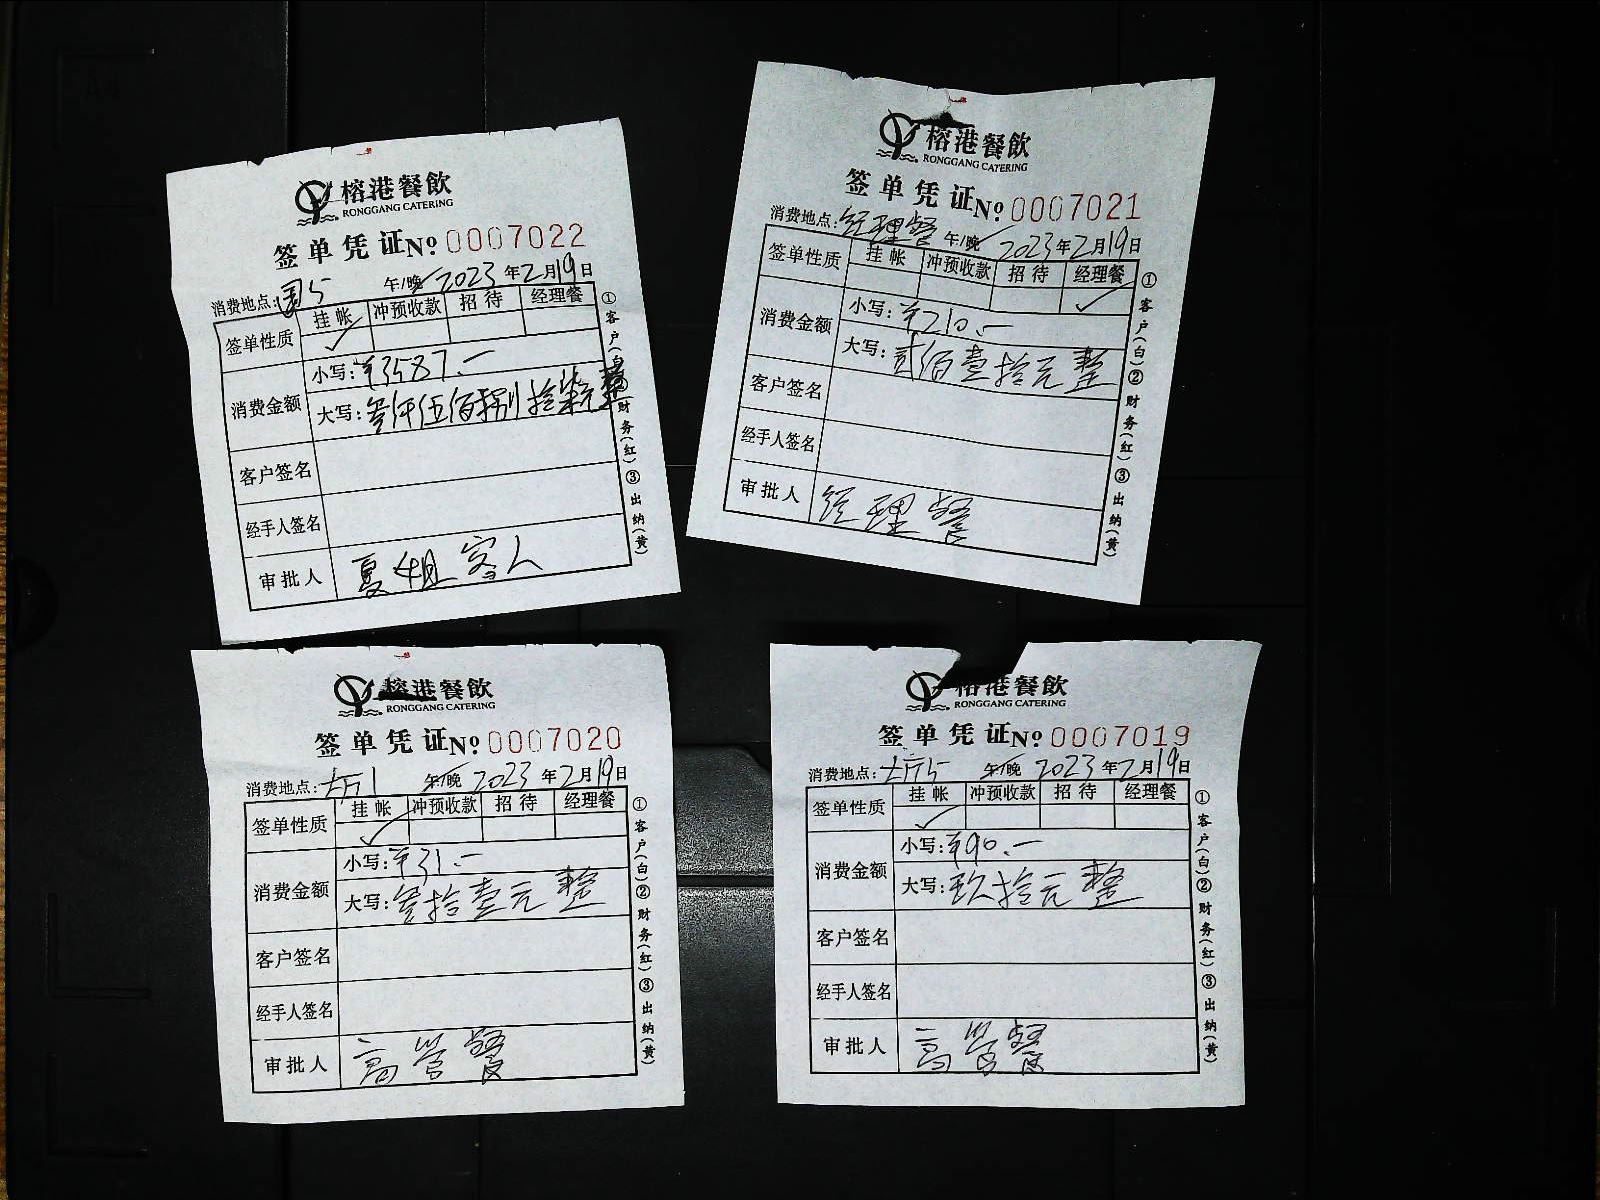 榕港餐飲
RONGGANG CATERING
签单凭证 № 0007022
消费地点: 5 午/晚 2023年2月19日
签单性质 挂帐 冲预收款 招待 经理餐
✓
消费金额 小写:¥3587.一
大写:叁仟伍佰捌拾柒元整
客户签名
经手人签名
审批人 夏姐客人
①客户(白)②财务(红)③出纳(黄)
榕港餐飲
RONGGANG CATERING
签单凭证 № 0007021
消费地点:经理餐 午/晚 2023年2月19日
签单性质 挂帐 冲预收款 招待 经理餐
✓
消费金额 小写:¥210.一
大写:贰佰壹拾元整
客户签名
经手人签名
审批人 经理餐
①客户(白)②财务(红)③出纳(黄)
榕港餐飲
RONGGANG CATERING
签单凭证 № 0007020
消费地点:大厅1 午/晚 2023年2月19日
签单性质 挂帐 冲预收款 招待 经理餐
✓
消费金额 小写:¥31.一
大写:叁拾壹元整
客户签名
经手人签名
审批人 高管餐
①客户(白)②财务(红)③出纳(黄)
榕港餐飲
RONGGANG CATERING
签单凭证 № 0007019
消费地点:大厅5 午/晚 2023年2月19日
签单性质 挂帐 冲预收款 招待 经理餐
✓
消费金额 小写:¥90.一
大写:玖拾元整
客户签名
经手人签名
审批人 高管餐
①客户(白)②财务(红)③出纳(黄)